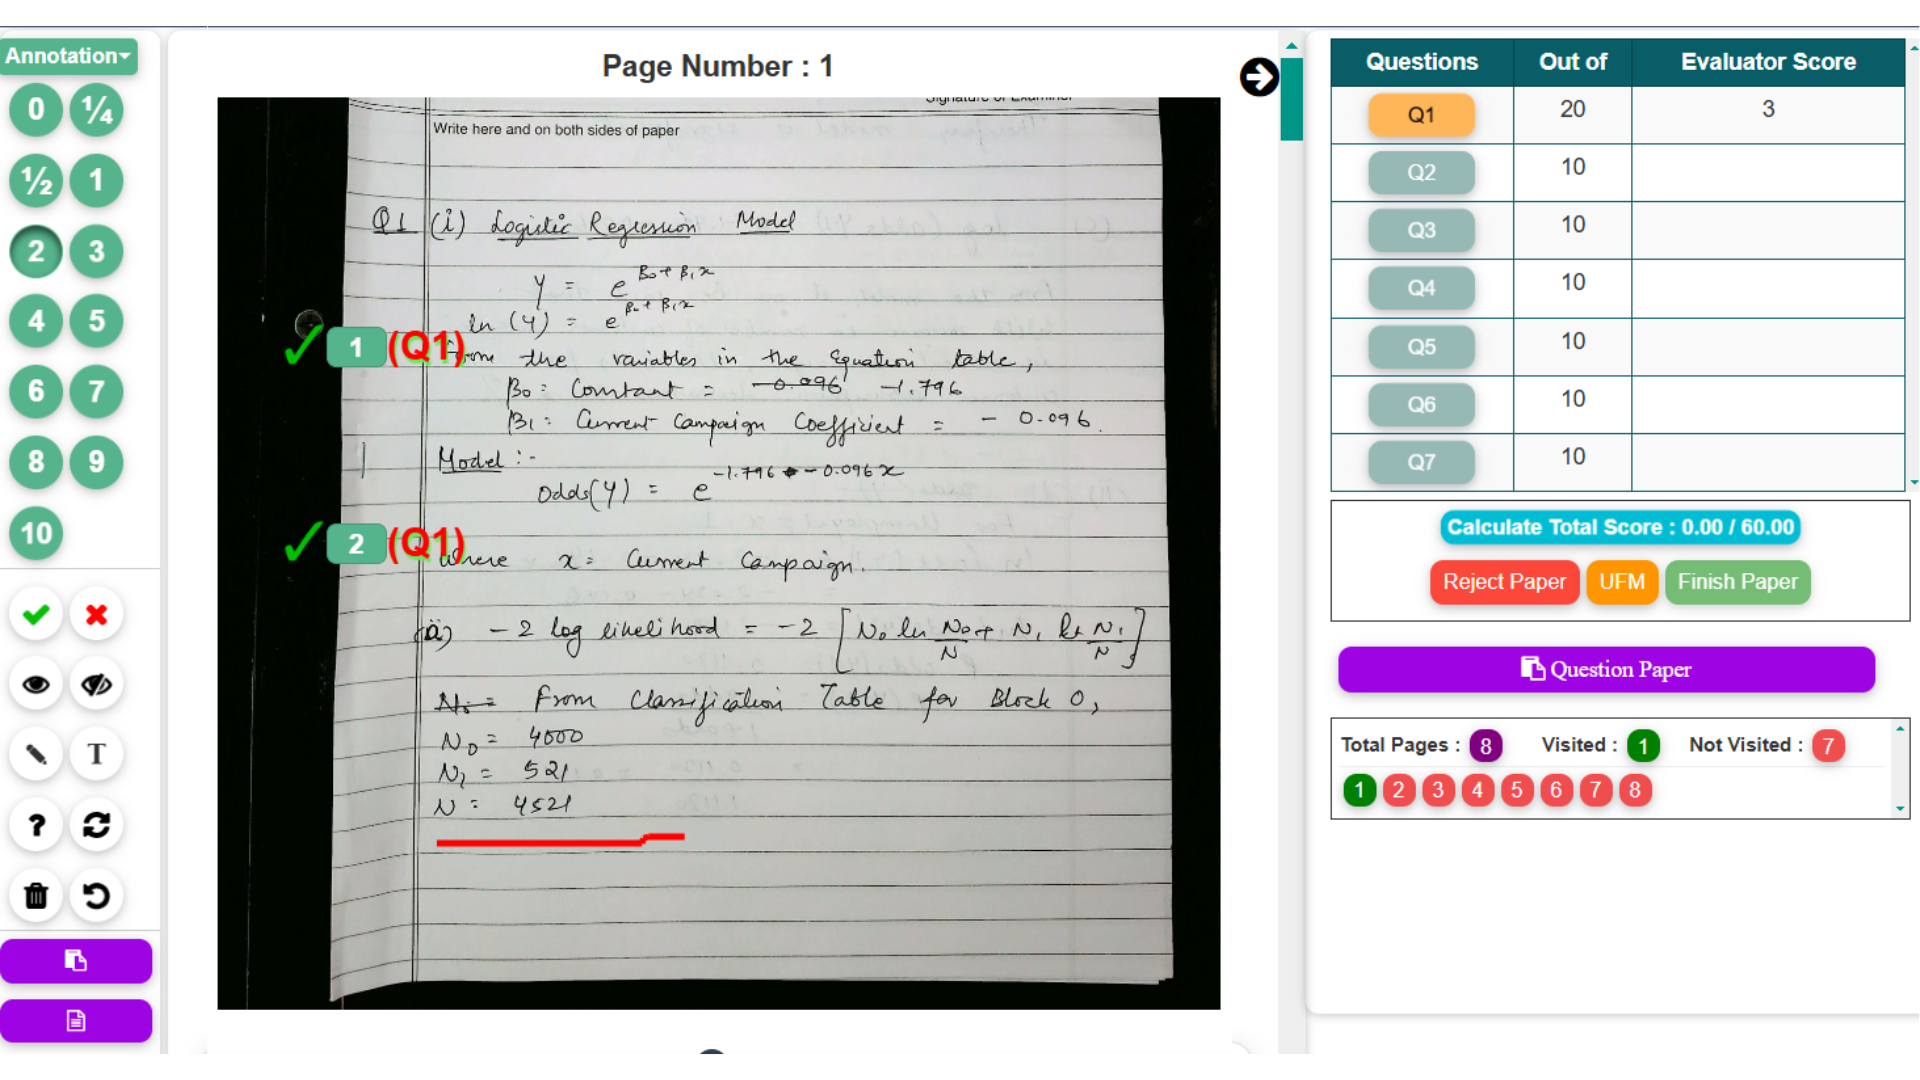 Annotation
0 ¼
½ 1
2 3
4 5
6 7
8 9
10
T
?
Page Number : 1
Signature of Examiner
Write here and on both sides of paper
Q1 (i) Logistic Regression Model
y = e^β₀+ β₁x
ln (y) = e^β₀+ β₁x
✓ 1 (Q1)
From the variables in the Equation table,
β₀ = Constant = -0.096 -1.796
β₁ = Current Campaign Coefficient = - 0.096.
Model :-
Odds(y) = e^-1.796 - 0.096x
✓ 2 (Q1)
Where x = Current Campaign.
(ii) - 2 log likelihood = -2 [N₀ ln N₀/N + N₁ ln N₁/N]
N₀ = From Classification Table for Block 0,
N₀ = 4000
N₁ = 521
N = 4521
Questions Out of Evaluator Score
Q1 20 3
Q2 10
Q3 10
Q4 10
Q5 10
Q6 10
Q7 10
Calculate Total Score : 0.00 / 60.00
Reject Paper UFM Finish Paper
Question Paper
Total Pages : 8 Visited : 1 Not Visited : 7
1 2 3 4 5 6 7 8